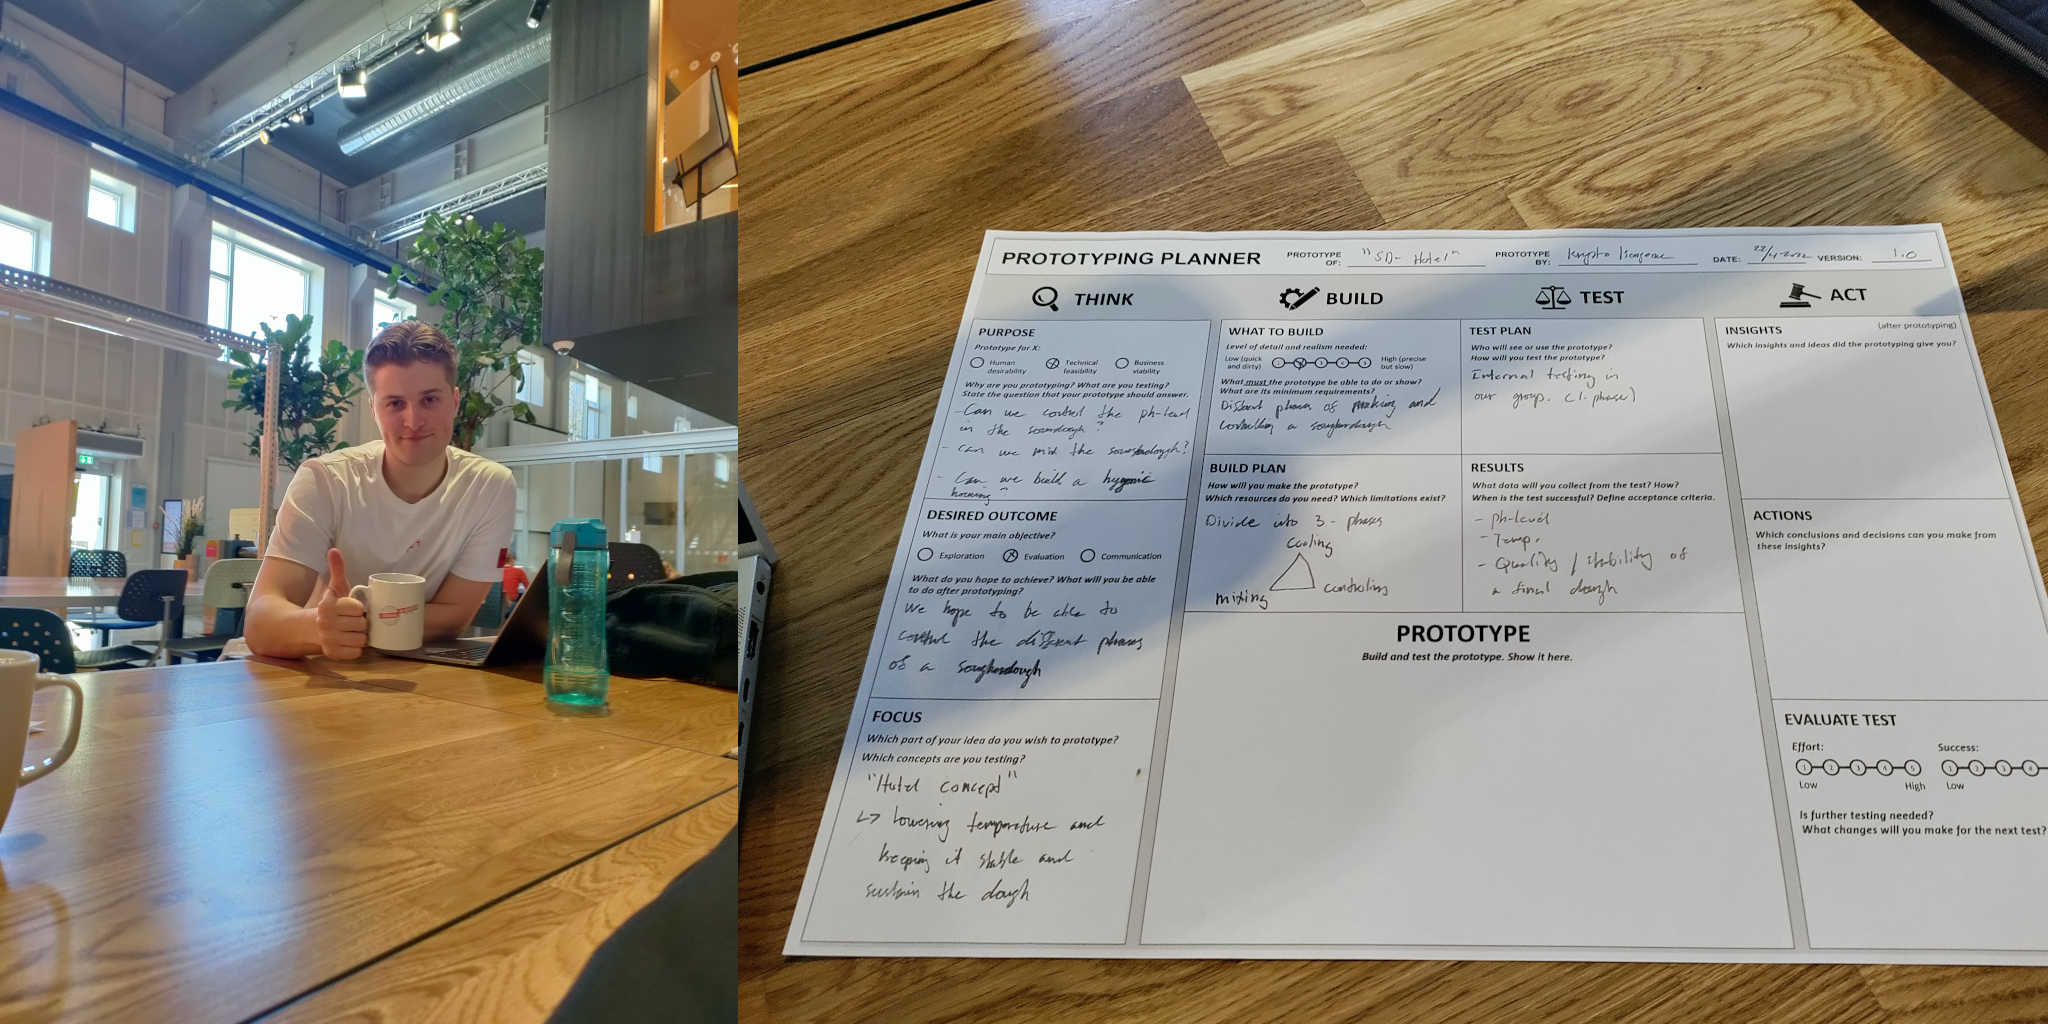 PROTOTYPING PLANNER
PROTOTYPE OF: "SD- Hotel"
PROTOTYPE BY: Krypto
DATE: 22/4-2022 VERSION: 1.0
THINK
PURPOSE
Prototype for X:
Human desirability
Technical feasibility
Business viability
Why are you prototyping? What are you testing?
State the question that your prototype should answer.
- Can we control the ph-level
in the sourdough?
- can we mix the
- Can we build a hygenic
housing
DESIRED OUTCOME
What is your main objective?
Exploration Evaluation Communication
What do you hope to achieve? What will you be able
to do after prototyping?
We hope to be able to
control the different phases
of a
FOCUS
Which part of your idea do you wish to prototype?
Which concepts are you testing?
"Hotel concept"
↳ lowering temperature and
keeping it stable and
sustain the dough
BUILD
WHAT TO BUILD
Level of detail and realism needed:
Low (quick and dirty) 1 2 3 4 5 High (precise but slow)
What must the prototype be able to do or show?
What are its minimum requirements?
phases of making and
a
BUILD PLAN
How will you make the prototype?
Which resources do you need? Which limitations exist?
Divide into 3- phases
cooling
mixing
controling
TEST
TEST PLAN
Who will see or use the prototype?
How will you test the prototype?
Internal testing in
our group. (1. phase)
RESULTS
What data will you collect from the test? How?
When is the test successful? Define acceptance criteria.
- ph-level
- Temp.
- Quality / stability of
a final dough
PROTOTYPE
Build and test the prototype. Show it here.
ACT
INSIGHTS (after prototyping)
Which insights and ideas did the prototyping give you?
ACTIONS
Which conclusions and decisions can you make from
these insights?
EVALUATE TEST
Effort: Success:
1 2 3 4 5 1 2 3 4
Low High Low
Is further testing needed?
What changes will you make for the next test?